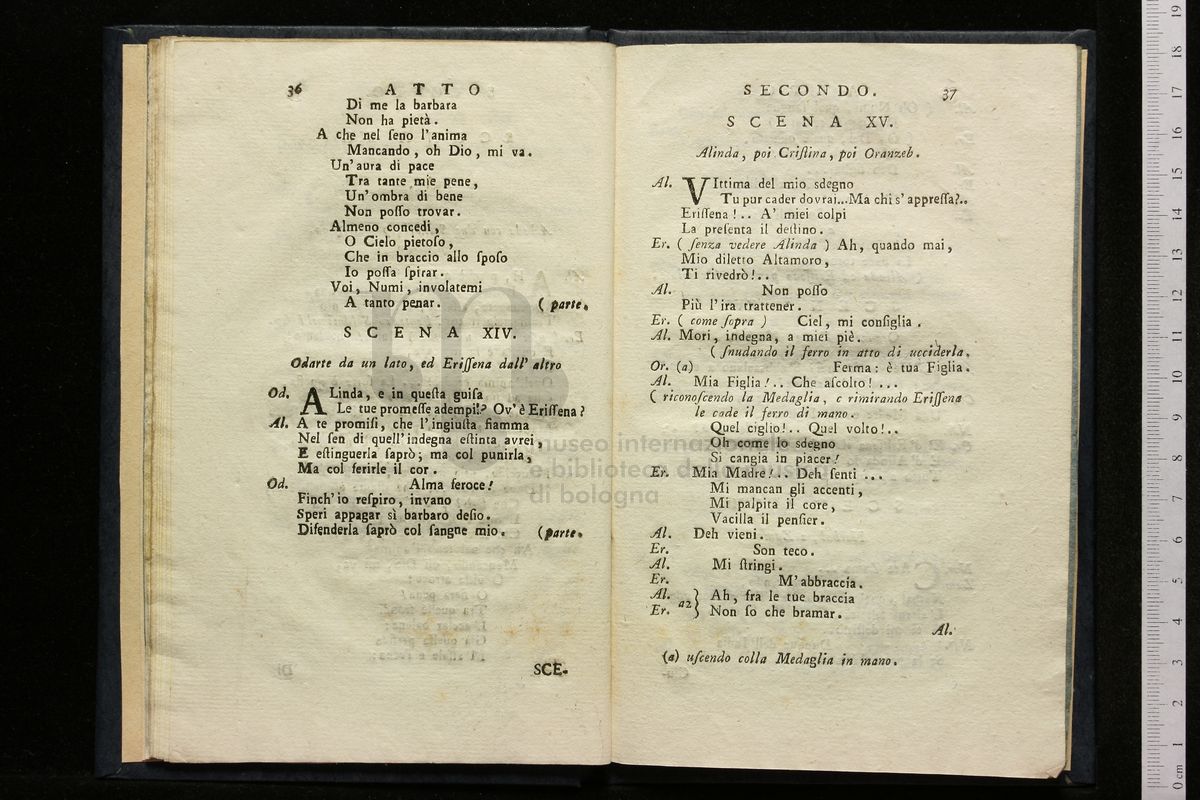 36 ATTO
Di me la barbara
Non ha pietà.
A che nel ſeno l'anima
Mancando, oh Dio, mi va.
Un'aura di pace
Tra tante mie pene,
Un'ombra di bene
Non poſſo trovar.
Almeno concedi,
O Cielo pietoſo,
Che in braccio allo ſpoſo
Io poſſa ſpirar.
Voi, Numi, involatemi
A tanto penar. (parte.
SCENA XIV.
Odarte da un lato, ed Eriſſena dall' altro
Od. ALinda, e in queſta guiſa
Le tue promeſſe adempi!? Ov' è Eriſſena?
Al. A te promiſi, che l'ingiuſta fiamma
Nel ſen di quell'indegna eſtinta avrei,
E eſtinguerla ſaprò; ma col punirla,
Ma col ferirle il cor.
Od. Alma feroce!
Finch' io reſpiro, invano
Speri appagar sì barbaro deſio.
Difenderla ſaprò col ſangue mio. (parte.
SCE-
SECONDO. 37
SCENA XV.
Alinda, poi Criſtina, poi Oranzeb.
Al. VIttima del mio sdegno
Tu pur cader dovrai...Ma chi s' appreſſa?..
Eriſſena!.. A' miei colpi
La preſenta il deſtino.
Er. (ſenza vedere Alinda) Ah, quando mai,
Mio diletto Altamoro,
Ti rivedrò!..
Al. Non poſſo
Più l'ira trattener.
Er. (come ſopra) Ciel, mi conſiglia.
Al. Mori, indegna, a miei piè.
(ſnudando il ferro in atto di ucciderla.
Or. (a) Ferma: è tua Figlia.
Al. Mia Figlia!.. Che aſcolto! ...
(riconoſcendo la Medaglia, e rimirando Eriſſena
le cade il ferro di mano.
Quel ciglio!.. Quel volto!..
Oh come lo sdegno
Si cangia in piacer!
Er. Mia Madre!.. Deh ſenti ...
Mi mancan gli accenti,
Mi palpita il core,
Vacilla il penſier.
Al. Deh vieni.
Er. Son teco.
Al. Mi ſtringi.
Er. M'abbraccia.
Al. } Ah, fra le tue braccia
Er. a2 } Non ſo che bramar.
Al.
(a) uſcendo colla Medaglia in mano.
museo internazionale
e biblioteca della musica
di bologna
0 cm 1 2 3 4 5 6 7 8 9 10 11 12 13 14 15 16 17 18 19